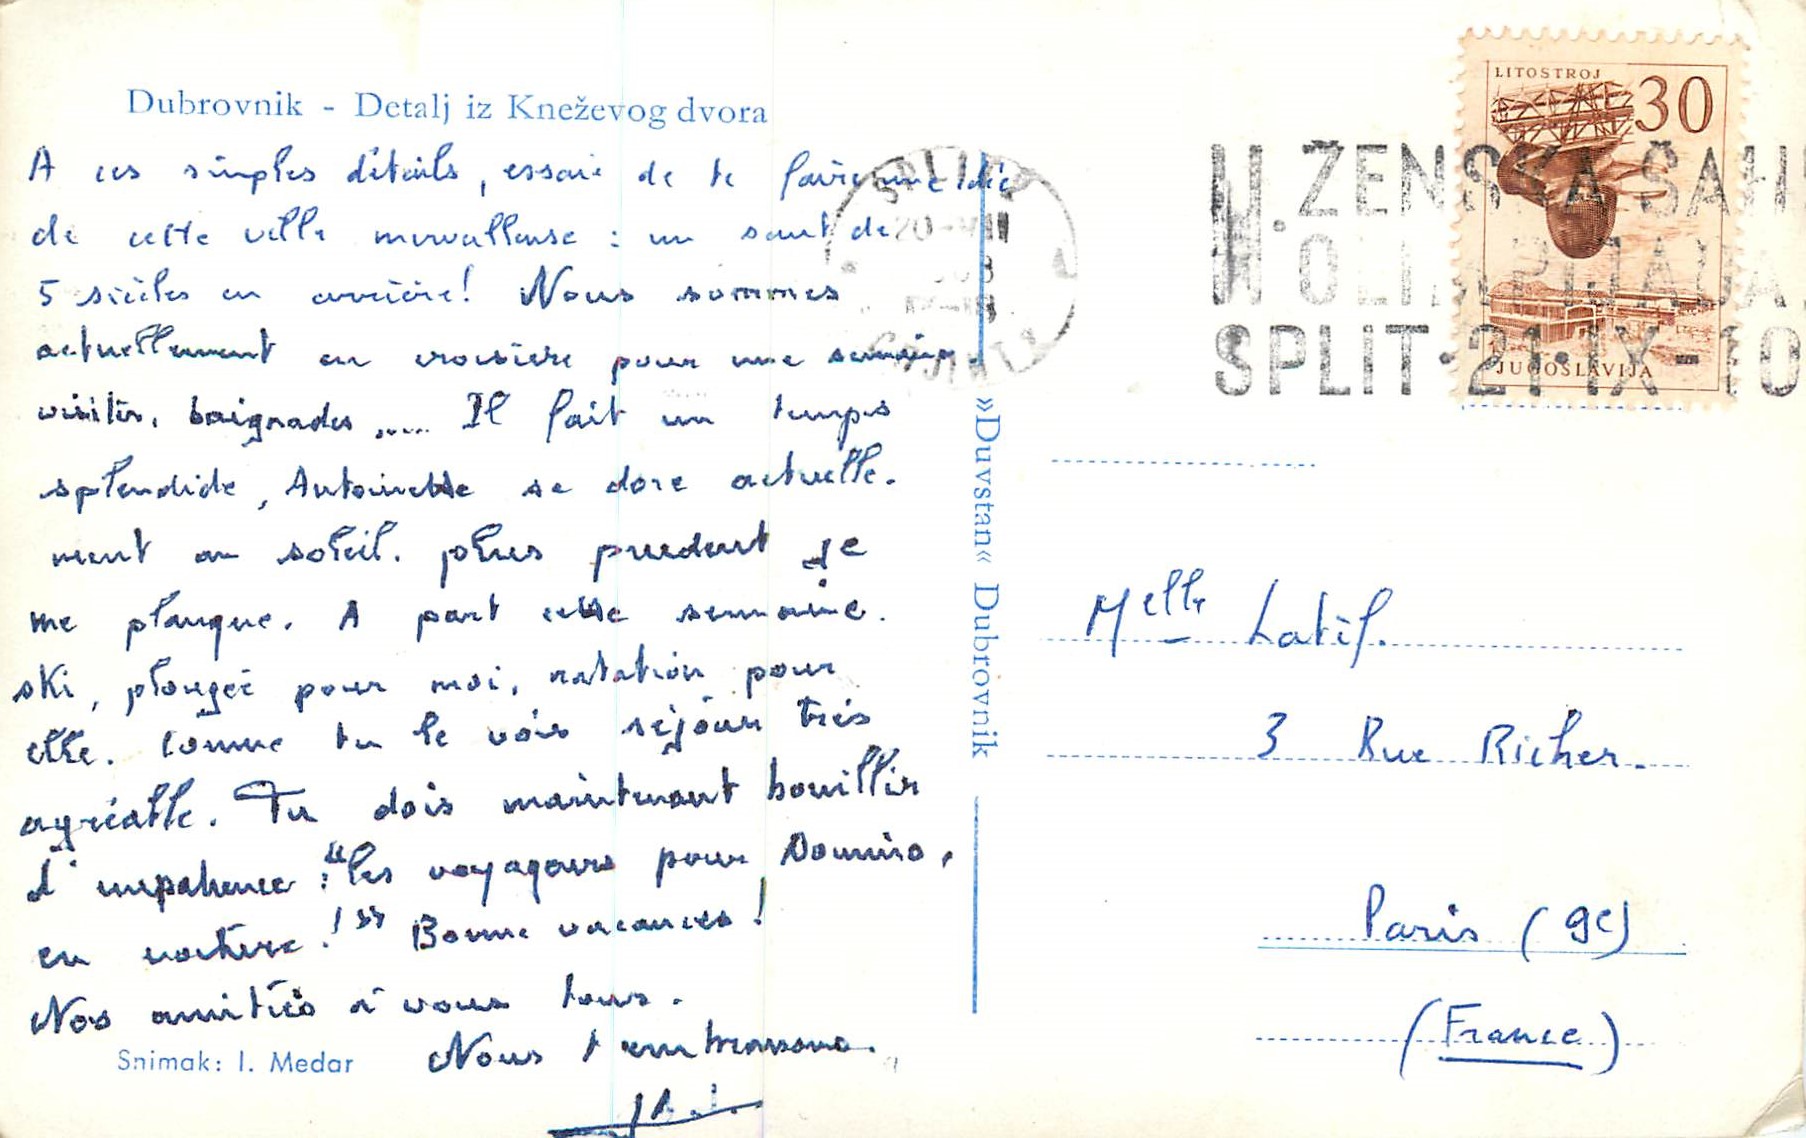 Dubrovnik - Detalj iz Kneževog dvora
A ces simples détails, essaie de te faire une idée
de cette ville merveilleuse : un saut de
5 siècles en arrière! Nous sommes
actuellement en croisière pour une semaine.
visites, baignades ..... Il fait un temps
splendide, Antoinette se dore actuelle-
ment au soleil. plus prudent je
me planque. A part cette semaine.
ski, plongée pour moi, natation pour
elle. Comme tu le vois séjour très
agréable. Tu dois maintenant bouillir
d'impatience : "les voyageurs pour Domino,
en voiture!" Bonne vacances!
Nos amitiés à vous tous.
Nous t'embrassons.
Snimak: I. Medar
»Duvstan« Dubrovnik
SPLIT
20-VIII
LITOSTROJ
30
JUGOSLAVIJA
II. ŽENSKA ŠAH
OLIMPIJADA
SPLIT·21·IX-10
Melle Latif.
3 Rue Richer.
Paris (9e)
(France)